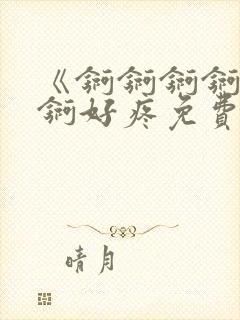 《锕锕锕锕
锕好疼免費
晴月